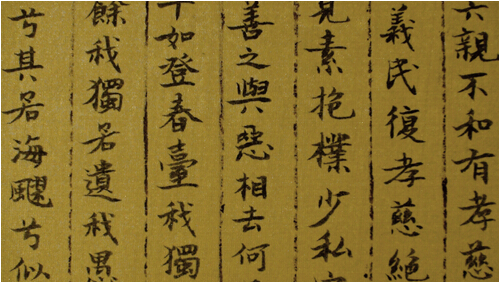 六親不和有孝慈
義民復孝慈絶
見素抱樸少私
善之與惡相去何
如登春臺我獨
餘我獨若遺我愚
兮其若海飂兮似